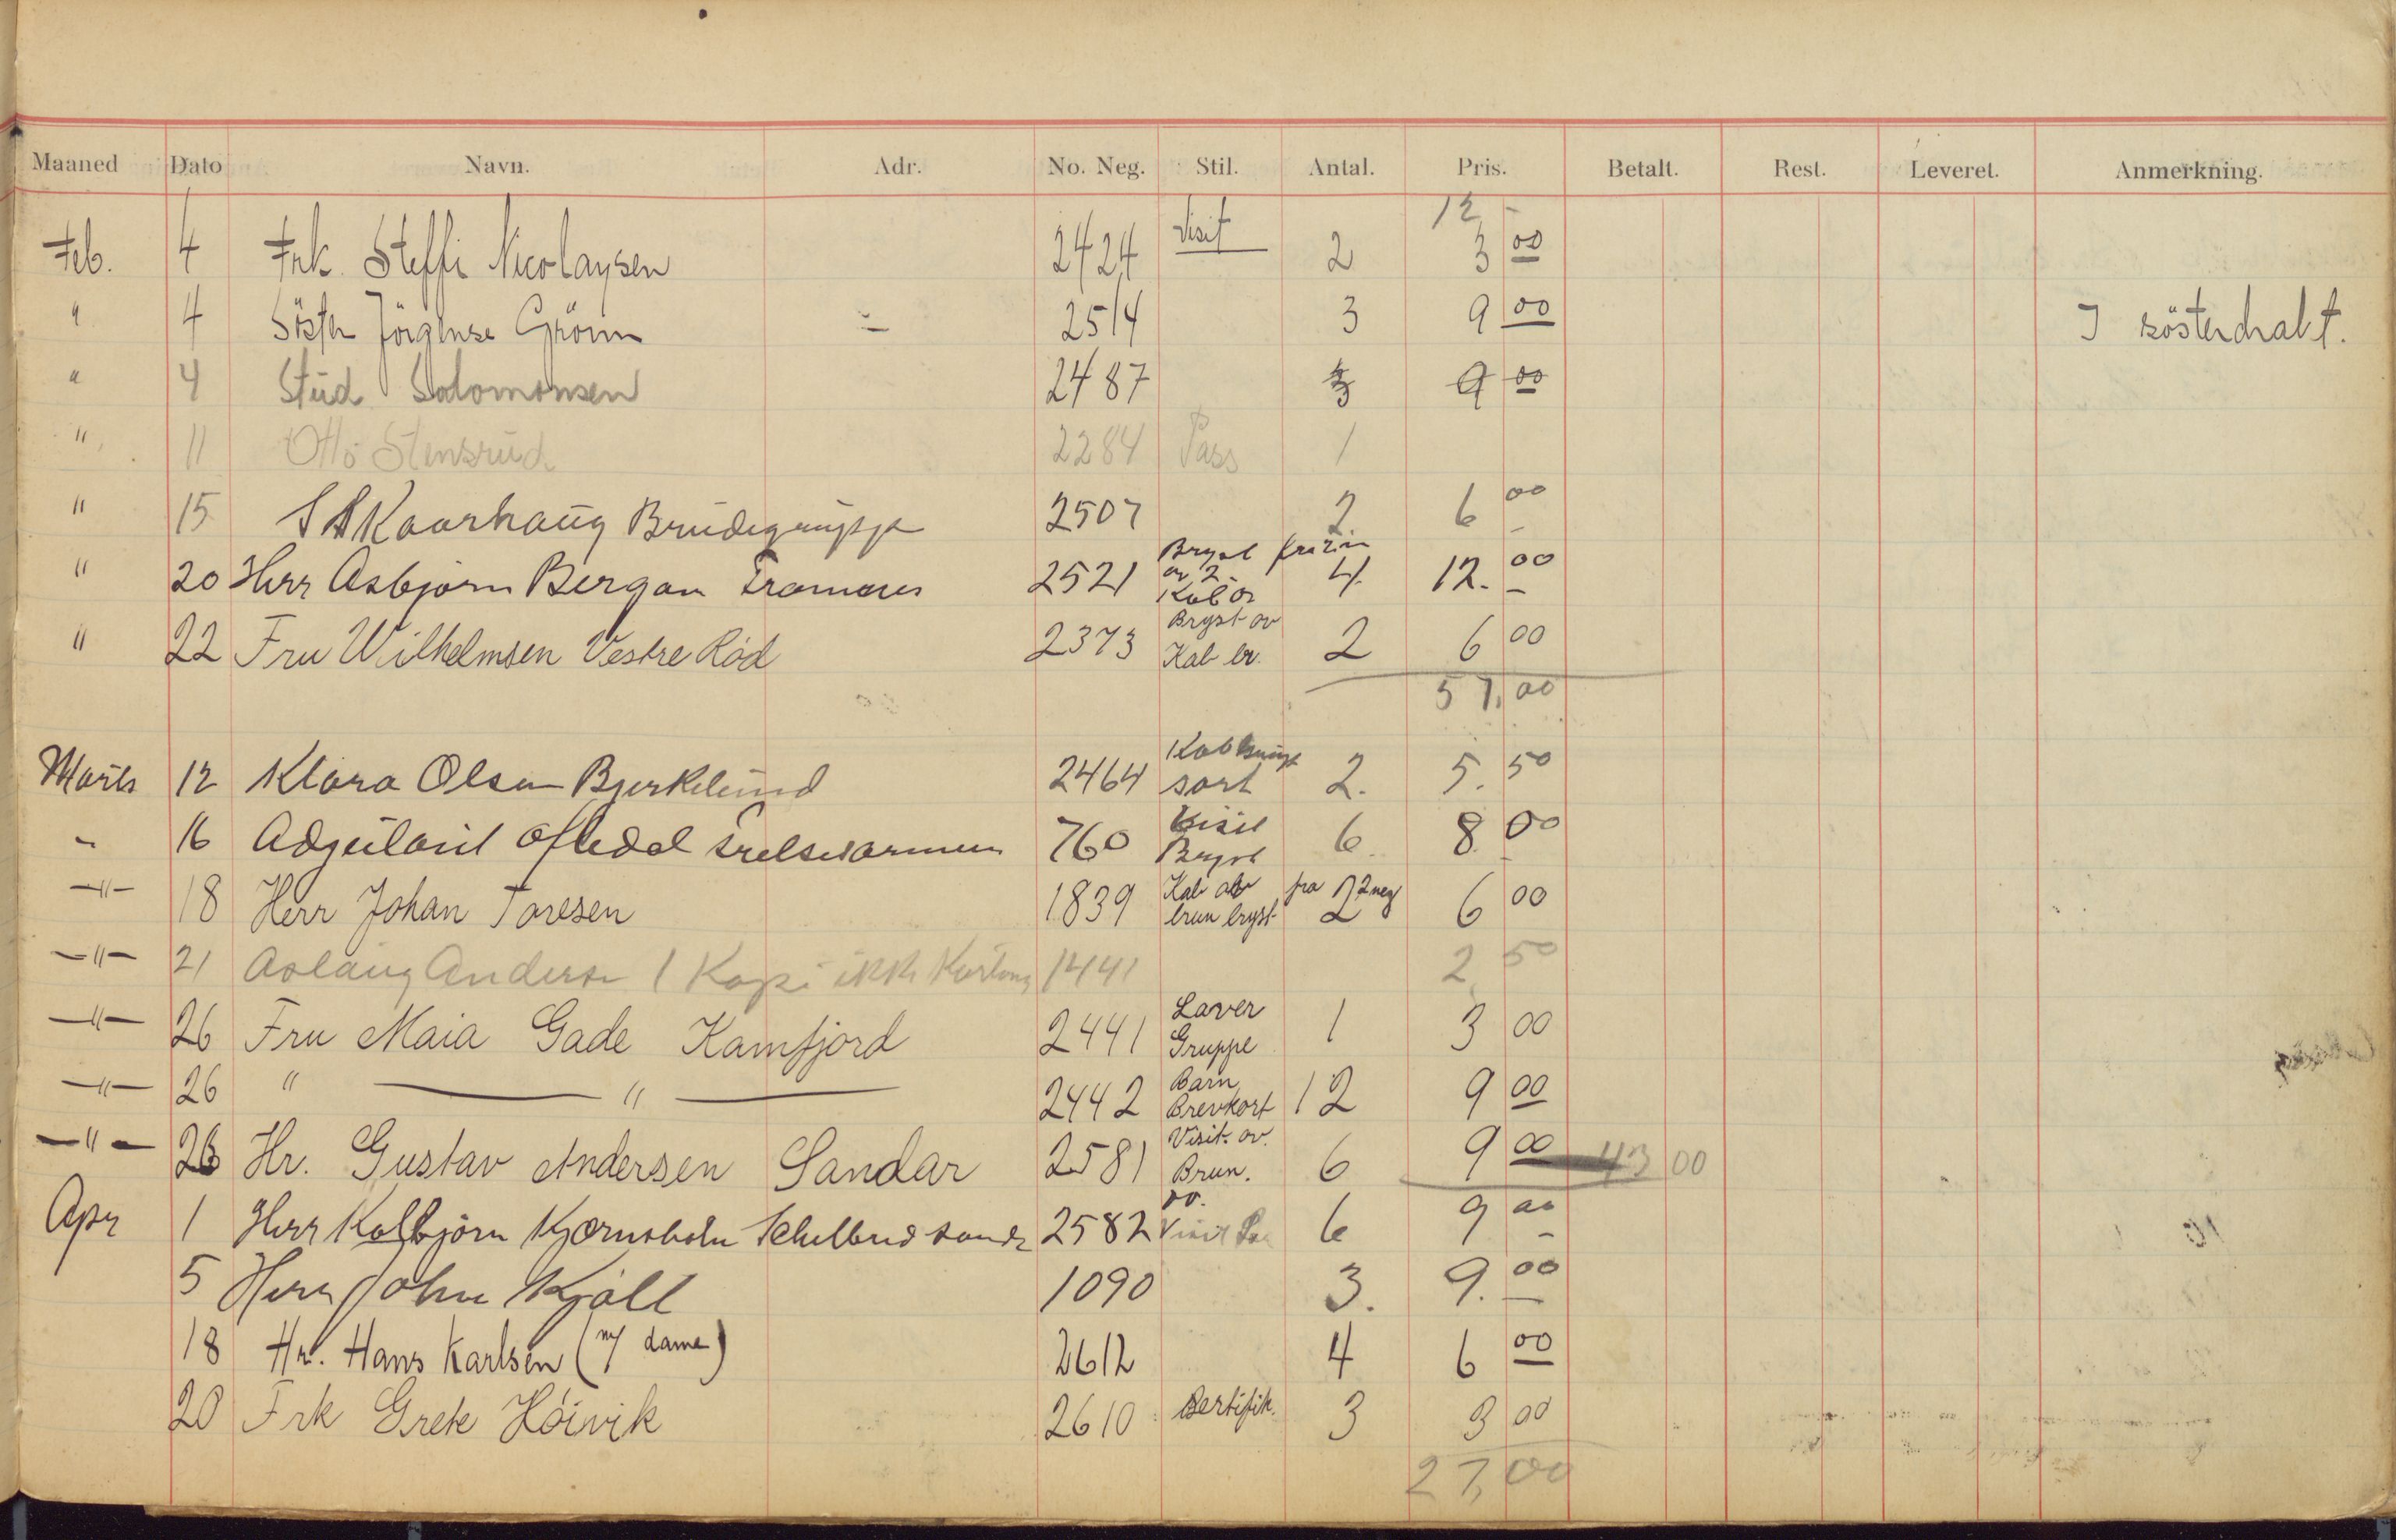 Maaned Dato Navn. Adr. No. Neg. Stil. Antal. Pris. Betalt. Rest. Leveret. Anmerkning.
12 -
Feb. 4 Frk. Steffi Nicolaysen 2424 Visit 2 3 00
" 4 Söster Jörgense Grönn - 2514 3 9 00 I sösterdrakt.
" 4 Stud Salomonsen 2487 3 9 00
" 11 Otto Stensrud 2284 Pass 1
" 15 Kaarhaug Brudegruppe 2507 2. 6 00
Bryst
" 20 Herr Asbjørn Bergan Tranæus 2521 av 2. 4. 12. 00
Kab
Bryst ov
" 22 Fru Wilhelmsen Vestre Röd 2373 Kab br. 2 6 00
57,00
Kab
Marts 12 Klara Olsen Bjerkelund 2464 sort 2. 5. 50
Visit
" 16 Adjutant Oftedal Frelsesarmeen 760 Bryst 6 8 00
Kab fra 2 neg
—"— 18 Herr Johan Toresen 1839 brun bryst 2 6 00
—"— 21 Aslaug Andersen 1 Kopi ikke 1441 2 50
Laver
—"— 26 Fru Maia Gade Kamfjord 2441 Gruppe 1 3 00
Barn
—"— 26 " —"— 2442 Brevkort 12 9 00
Visit. ov.
—"— 26 Hr. Gustav Andersen Sandar 2581 Brun. 6 9 00 43 00
ov.
Apr 1 Herr Kolbjörn Kjærnsholm 2582 Visit 6 9 00
5 Herr John Kjäll 1090 3. 9. 00
18 Hr. Hans Karlsen (m/ dame) 2612 4 6 00
20 Frk Grete Höivik 2610 Sertifik. 3 3 00
27,00